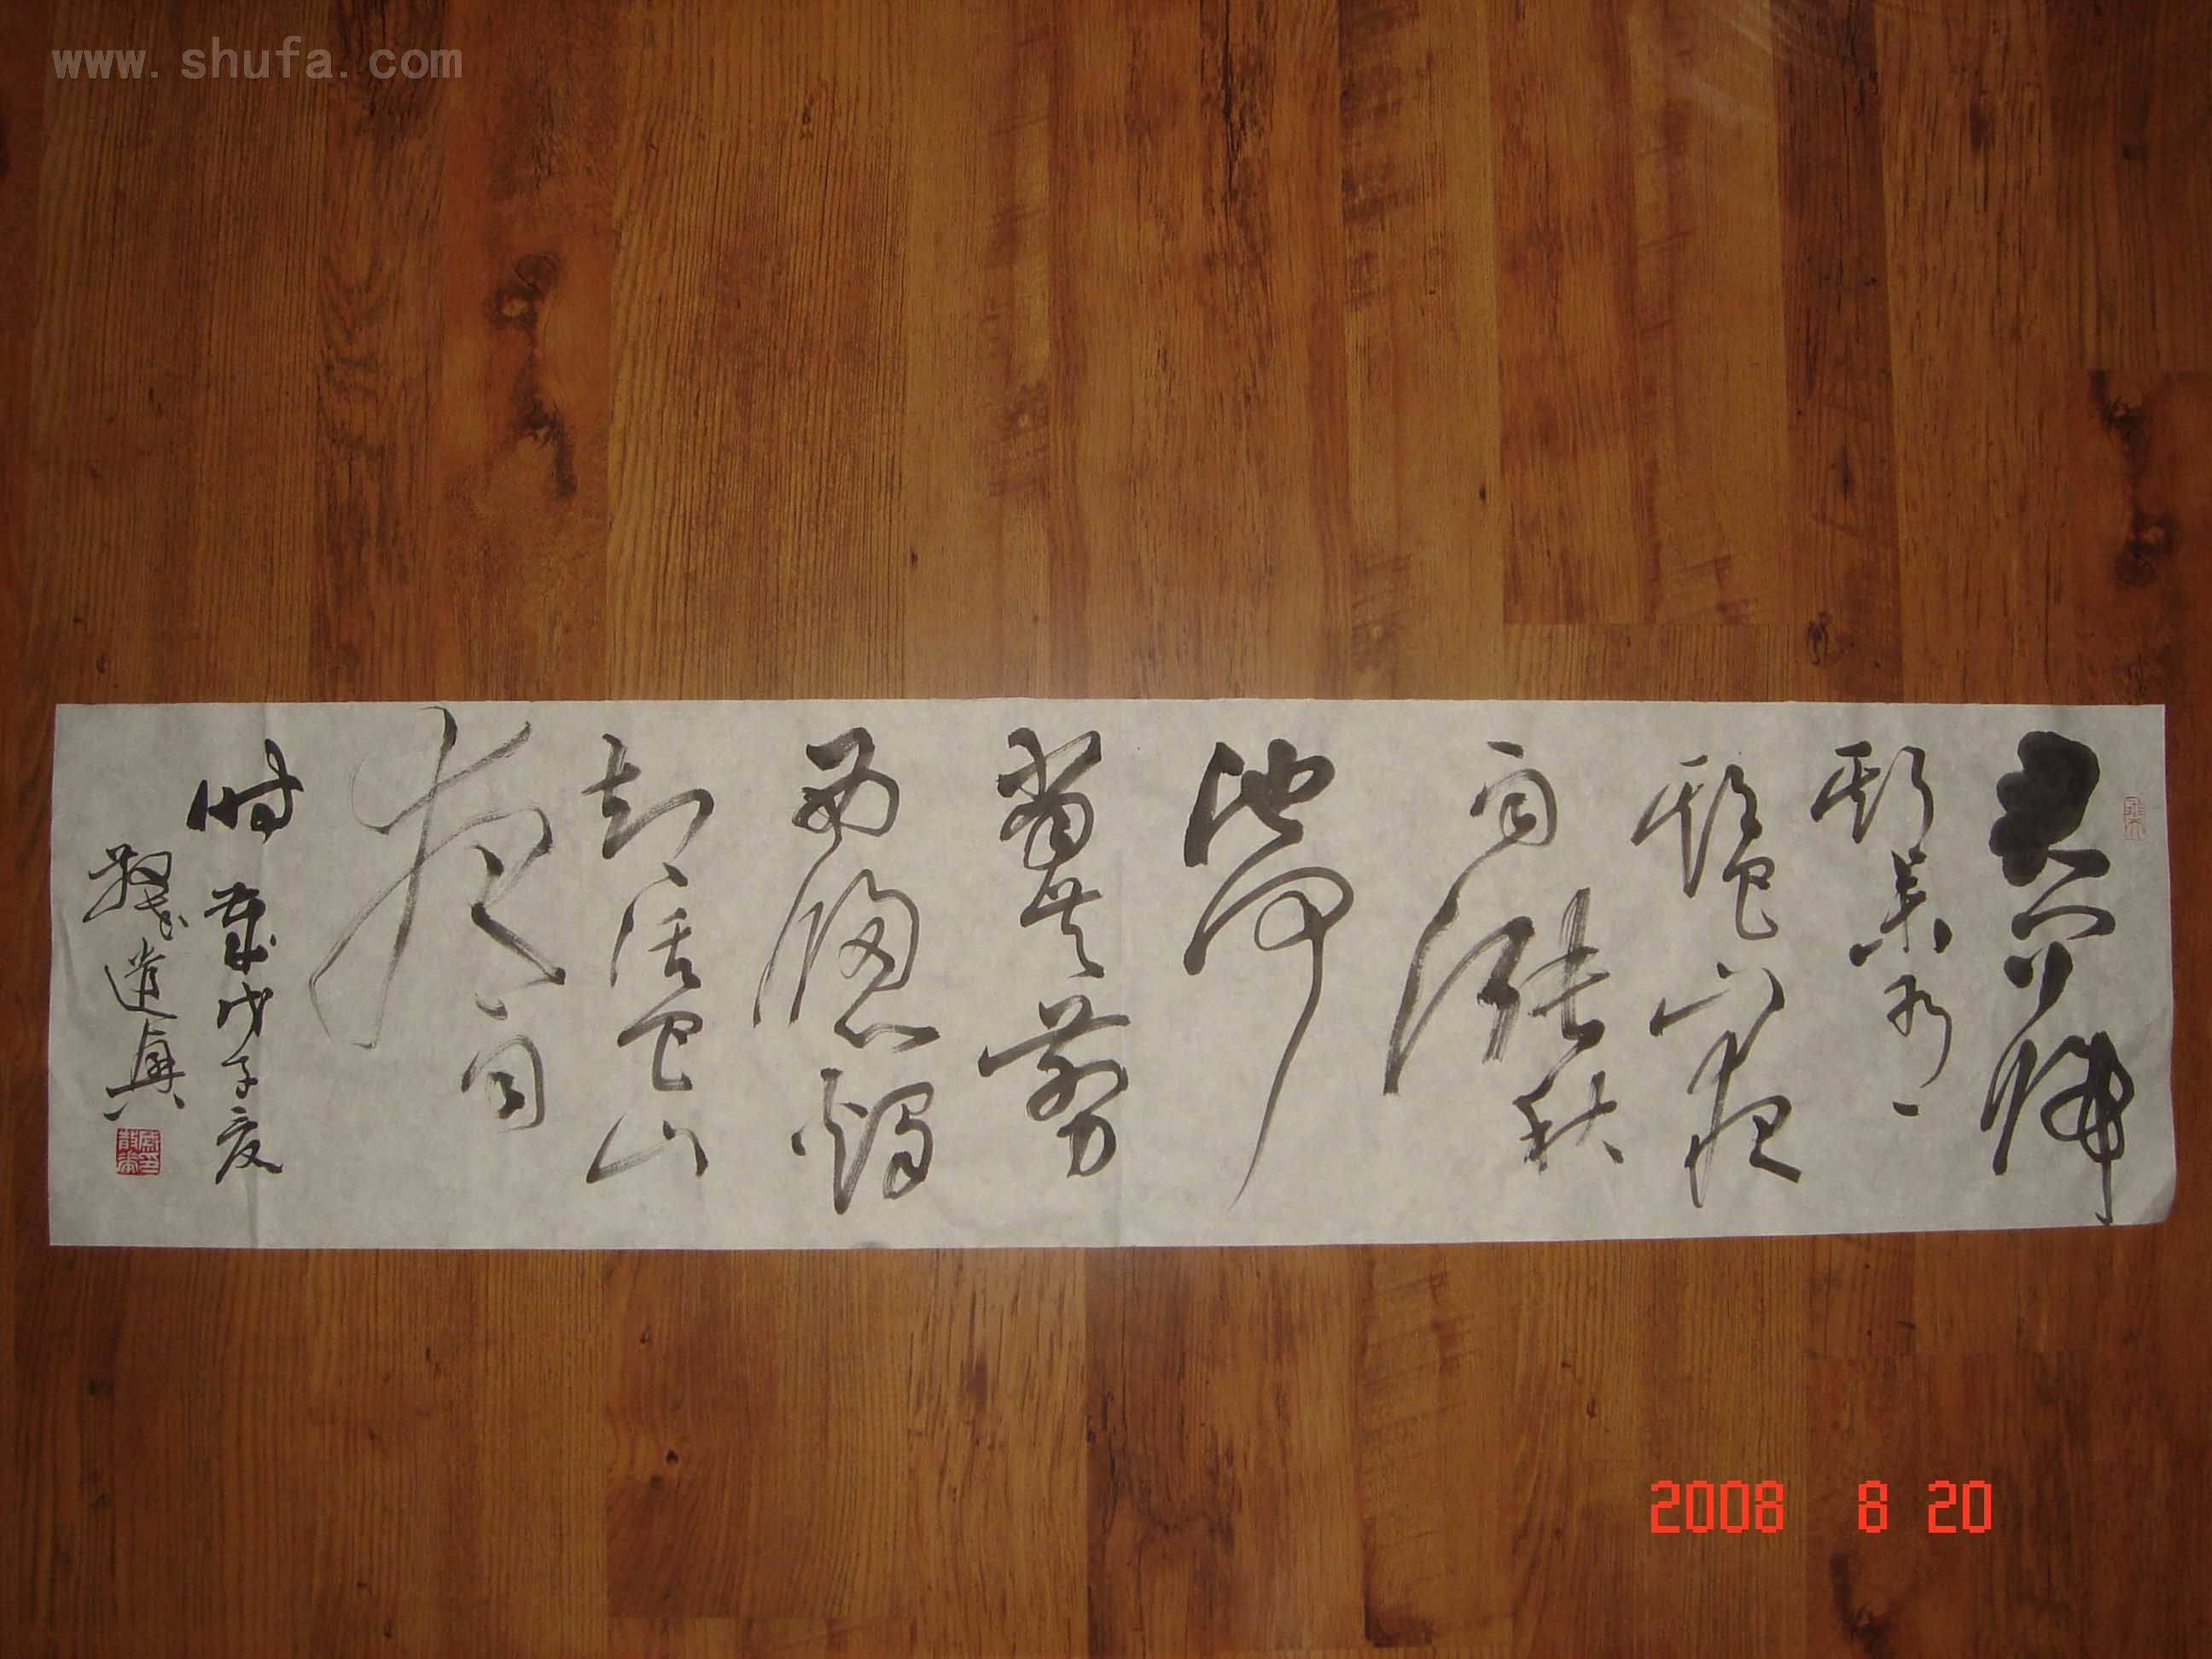 君问归
期未有
期巴山夜
雨漲秋
池何
當共剪
西窗燭
却话巴山
夜雨
时 歲戊子夏
遣興
www.shufa.com
2008 8 20